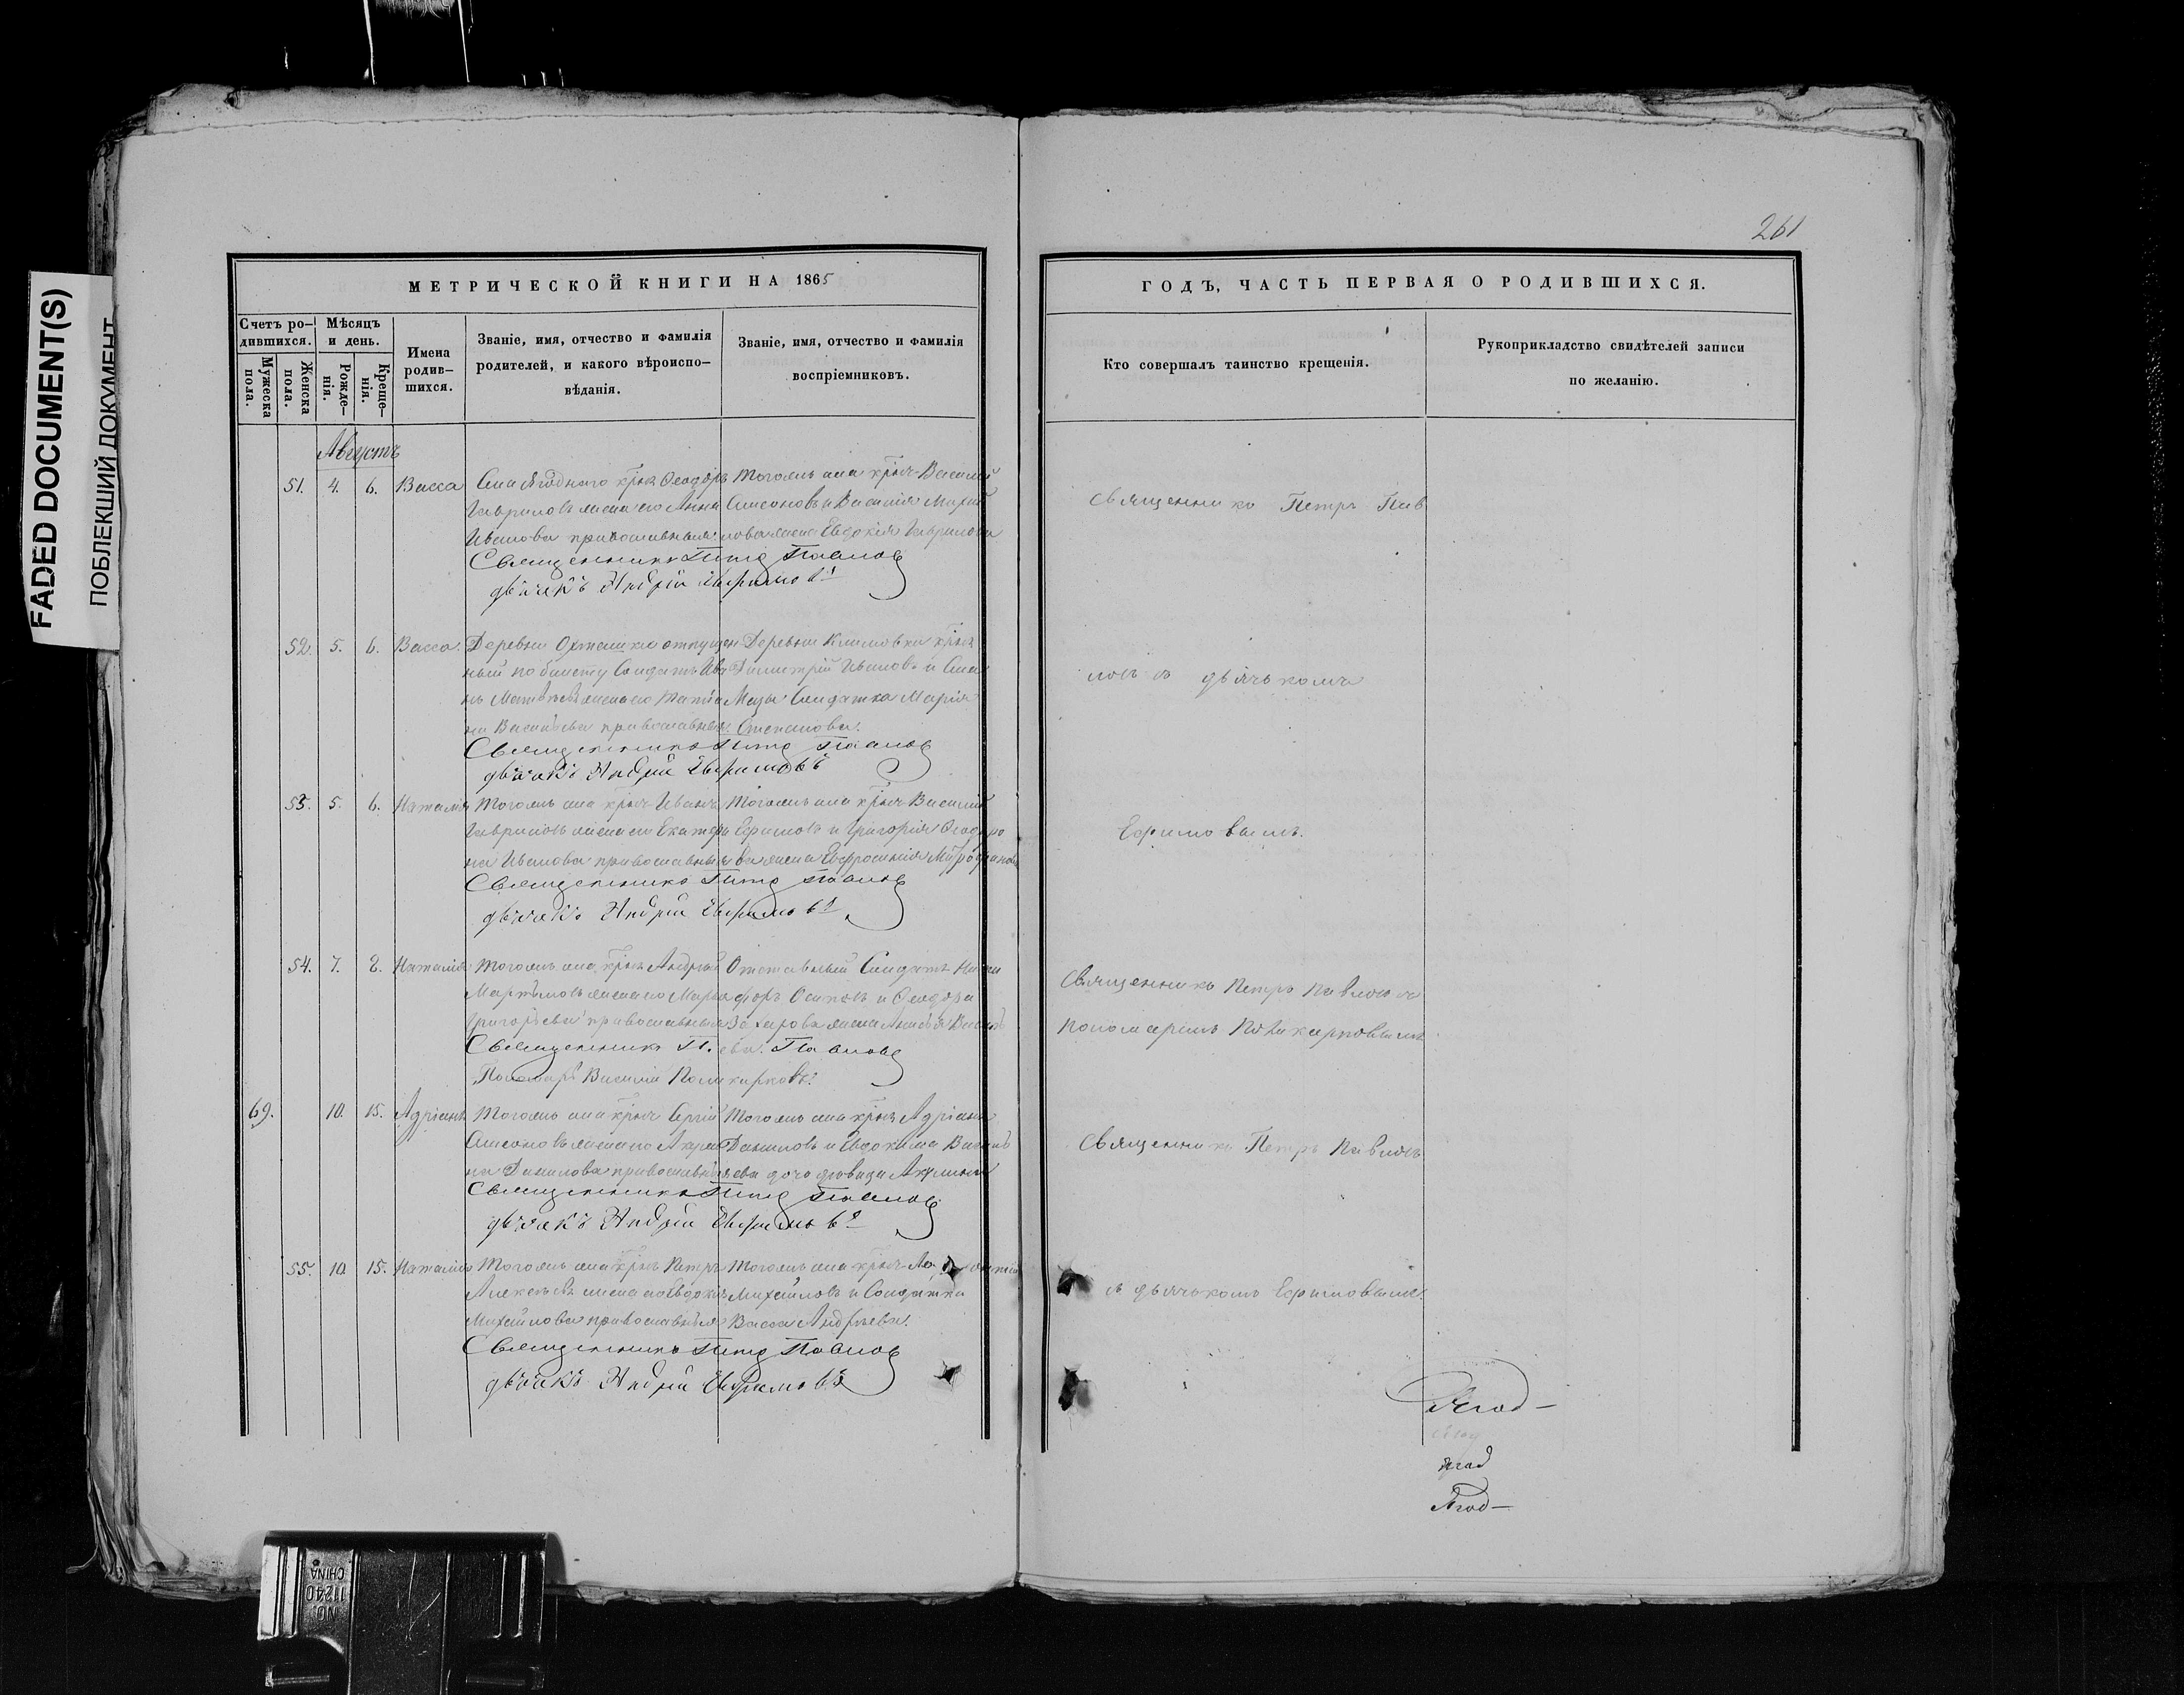 FADED DOCUMENT(S)
ПОБЛЕКШИЙ ДОКУМЕНТ
261
МЕТРИЧЕСКОЙ КНИГИ НА 1865
Счетъ ро-
дившихся.
Мужеска
пола.
Женска
пола.
Мѣсяцъ
и день.
Рожде-
нія.
Креще-
нія.
Имена
родив-
шихся.
Званіе, имя, отчество и фамилія
родителей, и какого вѣроиспо-
вѣданія.
Званіе, имя, отчество и фамилія
воспріемниковъ.
Августъ
51. 4. 6. Васса
Села Ягоднаго крест. Ѳеодоръ
Гавриловъ жена его Анна
Иванова православные
Тогожъ села крест. Василій
Симеоновъ и Василія
жена Евдокія Гаврилова
Священникъ Петръ Павловъ
дьячекъ Андрей Ефимовъ
52. 5. 6. Васса.
Деревни отпущен
ный по билету Солдатъ Ива
нъ Матвѣевъ жена его Татiа
на Васильева православные
Деревни Климовки крест.
Димитрій Ивановъ и Села
Мазы Солдатка Марія
Степанова.
Священникъ Петръ Павловъ
дьячекъ Андрей Ефимовъ
53. 5. 6. Наталія
Тогожъ села крест. Иванъ
Гавриловъ жена его Екатери
на Иванова православные
Тогожъ села крест. Василій
Ефимовъ и Григорія Ѳеодоро
ва жена Евфросинія Митрофанова
Священникъ Петръ Павловъ
дьячекъ Андрей Ефимовъ
54. 7. 8. Наталія
Тогожъ села крест. Андрей
Мартыновъ жена его Марѳа
Григорьева православные
Отставный Солдатъ Ники
форъ Осиповъ и Ѳеодора
Захарова жена Василь
ева.
Священникъ П. Павловъ
Пономарь Василій Поликарповъ.
69. 10. 15. Адріанъ
Тогожъ села крест. Сергій
Симеоновъ жена его Акули
на Данилова православные
Тогожъ села крест. Адріанъ
Даниловъ и Евдокима Василь
ева дочь дѣвица Акулина
Священникъ Петръ Павловъ
дьячекъ Андрей Ефимовъ
55. 10. 15. Наталія
Тогожъ села крест. Петръ
Алексѣевъ жена его Евдокія
Михайлова православные
Тогожъ села крест.
Михайловъ и Солдатка
Васса Андреева.
Священникъ Петръ Павловъ
дьячекъ Андрей Ефимовъ
ГОДЪ, ЧАСТЬ ПЕРВАЯ О РОДИВШИХСЯ.
Кто совершалъ таинство крещенія.
Рукоприкладство свидѣтелей записи
по желанію.
Священникъ Петръ Пав
ловъ съ дьячькомъ
Ефимовымъ.
Священникъ Петръ Павловъ съ
пономаремъ Поликарповымъ
Священникъ Петръ Павловъ
съ дьячькомъ Ефимовымъ.